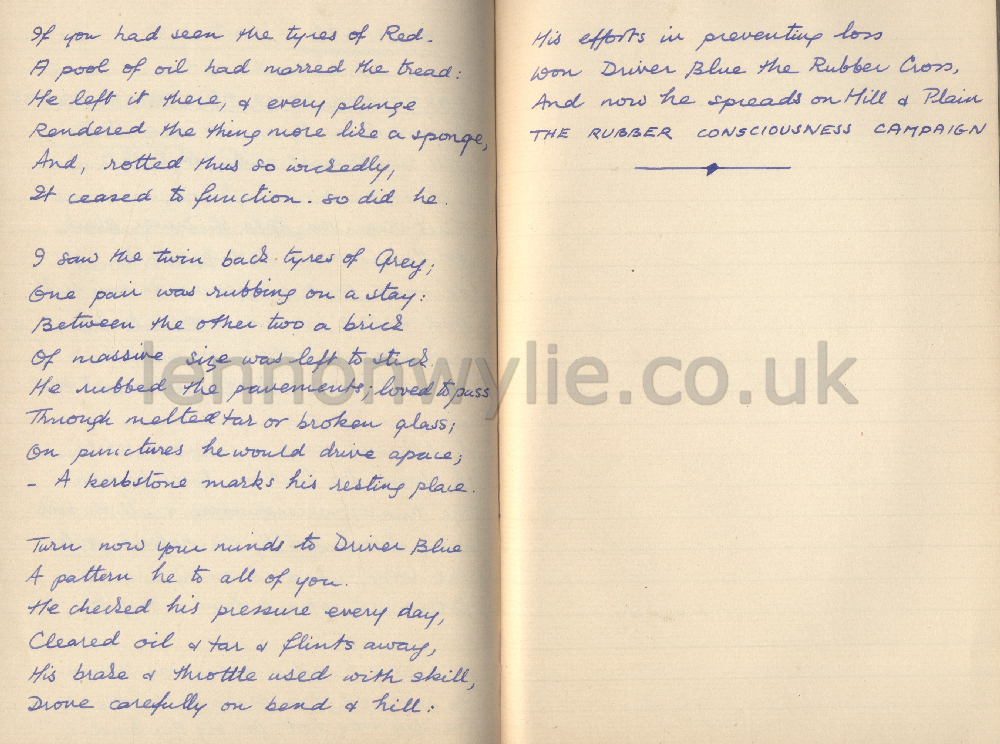 If you had seen the tyres of Red.
A pool of oil had marred the tread:
He left it there, & every plunge
Rendered the thing more like a sponge,
And, rotted thus so wickedly,
It ceased to function. so did he.
I saw the twin back tyres of Grey;
One pair was rubbing on a stay:
Between the other two a brick
Of massive size was left to stick.
He rubbed the pavements; loved to pass
Through melted tar or broken glass;
On punctures he would drive apace;
- A kerbstone marks his resting place.
Turn now your minds to Driver Blue
A pattern he to all of you.
He checked his pressure every day,
Cleared oil & tar & flints away,
His brake & throttle used with skill,
Drove carefully on bend & hill:
His efforts in preventing loss
Won Driver Blue the Rubber Cross,
And now he spreads on Hill & Plain
THE RUBBER CONSCIOUSNESS CAMPAIGN
lennonwylie.co.uk